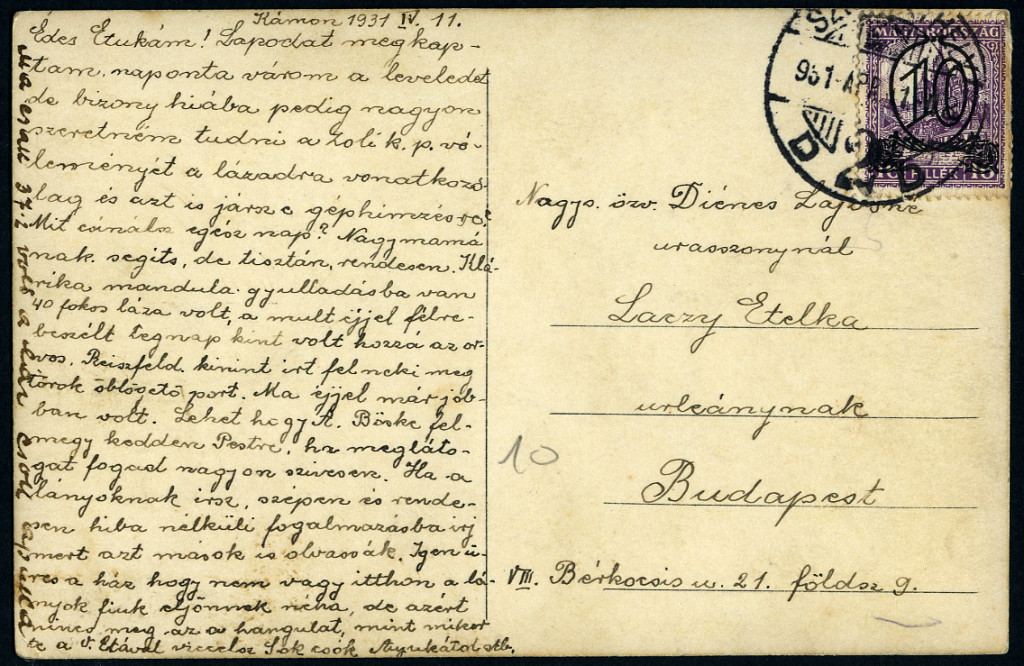 Kámon 1931 IV. 11.
Édes Etukám! Lapodat megkap-
tam. naponta várom a leveledet
de bizony hiába pedig nagyon
szeretném tudni a k. p. vé-
leményét a lázadra vonatkozó-
lag és azt is jársz e géphimzésre?
Mit csinálsz egesz nap? Nagymamá
nak segits, de tisztán, rendesen. Klá-
rika mandula gyulladásba van
40 fokos láza volt, a mult éjjel félre-
beszélt tegnap kint volt hozzá az or-
vos. Reiszfeld. kinint irt fel neki meg
torok öblögető port. Ma éjjel már job-
ban volt. Lehet hogy A. Böske fel-
megy kedden Pestre, ha megláto-
gat fogad nagyon szivesen. Ha a
lányoknak irsz, szépen és rende-
sen hiba nélküli fogalmazásba irj
mert azt mások is olvassák. Igen ü-
res a ház hogy nem vagy itthon a lá-
nyok fiuk eljönnek néha, de azért
nincs meg az a hangulat, mint mikor
te a V. Etával viccelsz Sok csók Anyukától stb.
ma csak 37.2 volt a
MAGYARORSZÁG
10
10 FILLÉR 10
931 APR
D D
Nagys. özv. Diénes Lajosné
urasszonynál
Laczy Etelka
urleánynak
10
Budapest
VIII. Bérkocsis u. 21. földsz 9.